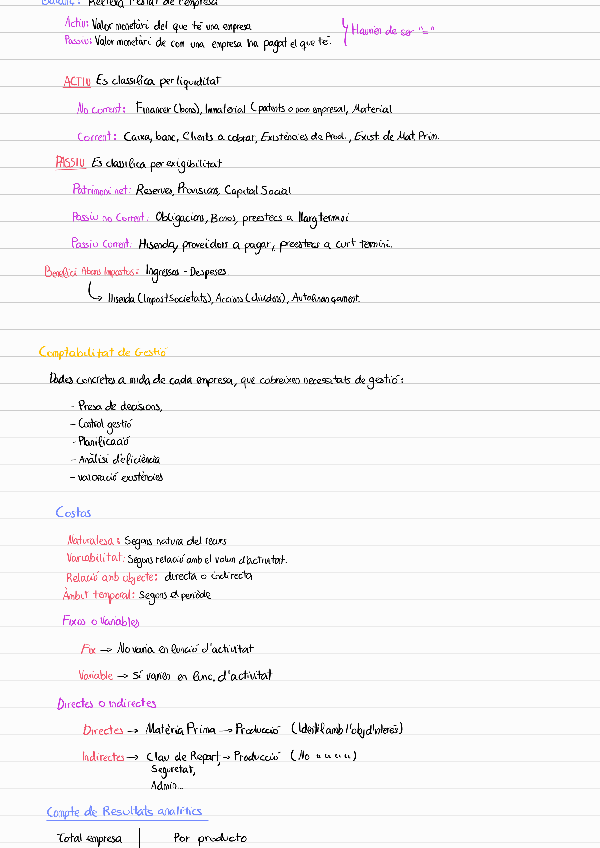 Balanç: Reflexa l'estat de l'empresa
Actiu: Valor monetàri del que té una empresa
Passiu: Valor monetàri de com una empresa ha pagat el que té.
Haurien de ser "="
ACTIU Es classifica per liquiditat
No corrent: Financer (bons), Inmaterial (patents o nom empresa), Material
Corrent: Caixa, banc, Clients a cobrar, Existències de Prod., Exist. de Mat. Prim.
PASSIU Es classifica per exigibilitat
Patrimoni net: Reserves, Provisions, Capital Social
Passiu no Corrent: Obligacions, Bonos, preestecs a llarg termini
Passiu Corrent: Hisenda, proveidors a pagar, preestecs a curt termini.
Benefici Abans Impostos: Ingressos - Despeses
↳ Hisenda (Impost Societats), Accions (dividens), Autofinançament.
Comptabilitat de Gestió
Dades concretes a mida de cada empresa, que cobreixen necessitats de gestió:
- Presa de decisions,
- Control gestió
- Planificació
- Anàlisi d'eficiència
- valoració existències
Costos
Naturalesa: Segons natura del recurs
Variabilitat: Segons relació amb el volum d'activitat.
Relació amb objecte: directa o indirecta
Àmbit temporal: Segons el periòde
Fixos o Variables
Fix → No varia en funció d'activitat
Variable → Sí varien en func. d'activitat
Directes o indirectes
Directes → Matèria Prima → Producció (Identif. amb l'obj d'interès)
Indirectes → Clau de Repart. → Producció (No " " " ")
Seguretat,
Admin...
Compte de Resultats analítics
Total empresa | Por producto